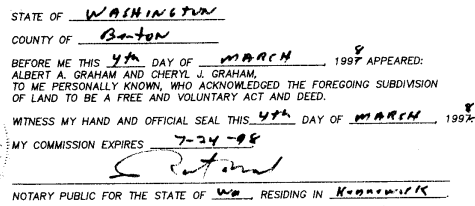 STATE OF WASHINGTON
COUNTY OF Benton
BEFORE ME THIS 4th DAY OF MARCH, 1998 APPEARED:
ALBERT A. GRAHAM AND CHERYL J. GRAHAM,
TO ME PERSONALLY KNOWN, WHO ACKNOWLEDGED THE FOREGOING SUBDIVISION
OF LAND TO BE A FREE AND VOLUNTARY ACT AND DEED.
WITNESS MY HAND AND OFFICIAL SEAL THIS 4th DAY OF MARCH, 1998.
MY COMMISSION EXPIRES 7-24-98
NOTARY PUBLIC FOR THE STATE OF Wa, RESIDING IN Kennewick.